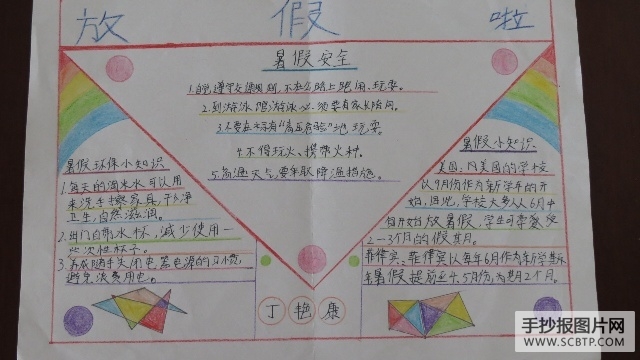 放假啦
暑假安全
1.自觉遵守交通规则,不在公路上跑闹、玩耍。
2.到游泳馆游泳必须要有家长陪同。
3.不要在标有“高压危险”地玩耍。
4.不得玩火、携带火种。
5.高温天气,要采取降温措施。
暑假环保小知识
1.每天的淘米水可以用
来洗手擦家具,干净
卫生,自然滋润。
2.出门自带水杯,减少使用一
些次性杯子。
3.养成随手关闭电器电源的习惯,
避免浪费用电。
暑假小知识
美国:因美国的学校
以9月份作为新学年的开
始,因此,学校大多从6月
开始放暑假,学生可享受
2-3个月的假期。
菲律宾:菲律宾以每年6月作为新学期
暑假提前至4、5月份,为期2个月。
丁艳康
手抄报图片网
WWW.SCBTP.COM